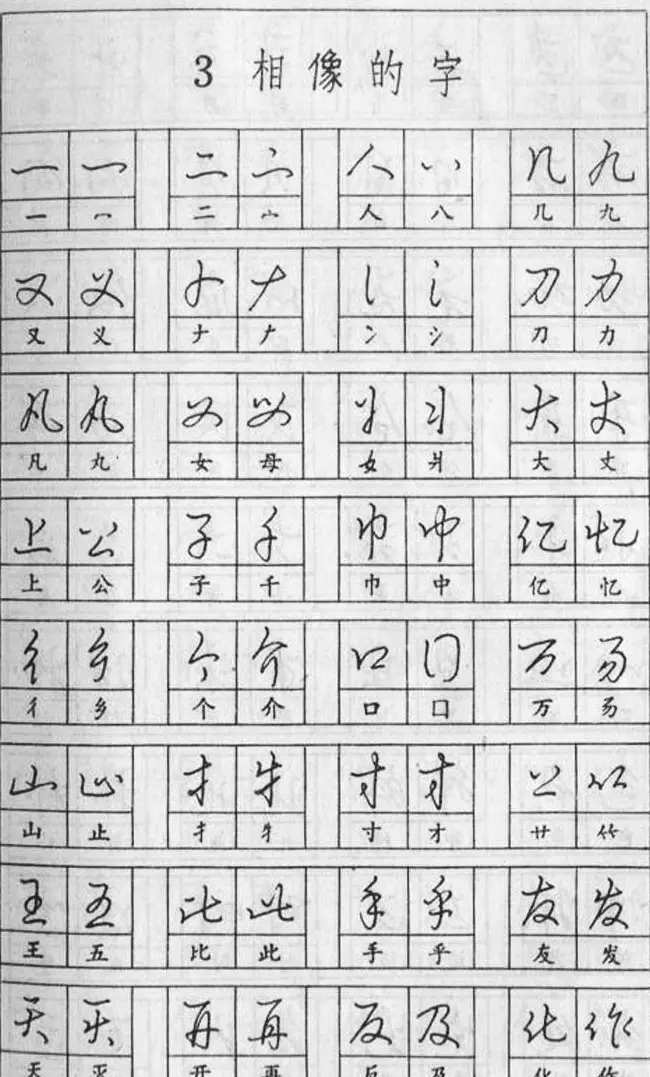 3 相像的字
一 一 二 亠 人 八 几 九
一 冖 二 亠 人 八 几 九
又 义 ナ 刀 力
又 义 刀 力
凡 丸 女 母 大 丈
凡 丸 女 母 女 爿 大 丈
上 公 子 千 巾 中 亿 忆
上 公 子 千 巾 中 亿 忆
彳 乡 个 介 口 囗 万
彳 乡 个 介 口 囗 万
山 止 扌 牜 寸 才
山 止 扌 牜 寸 才 廿 竹
王 五 比 此 手 乎 友 发
王 五 比 此 手 乎 友 发
天 灭 开 再 反 及 化 作
天 灭 开 再 反 及 化 作